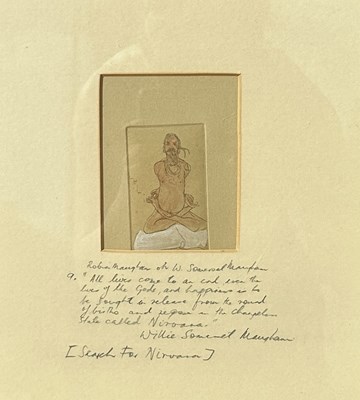 Robin Maugham W. Somerset Maugham
9. "All lives come to an end even the
lives of the Gods, and happiness is to
be sought in release from the round
of births and repose in the changeless
State called Nirvana."
Willie Somerset Maugham
[Search For Nirvana]